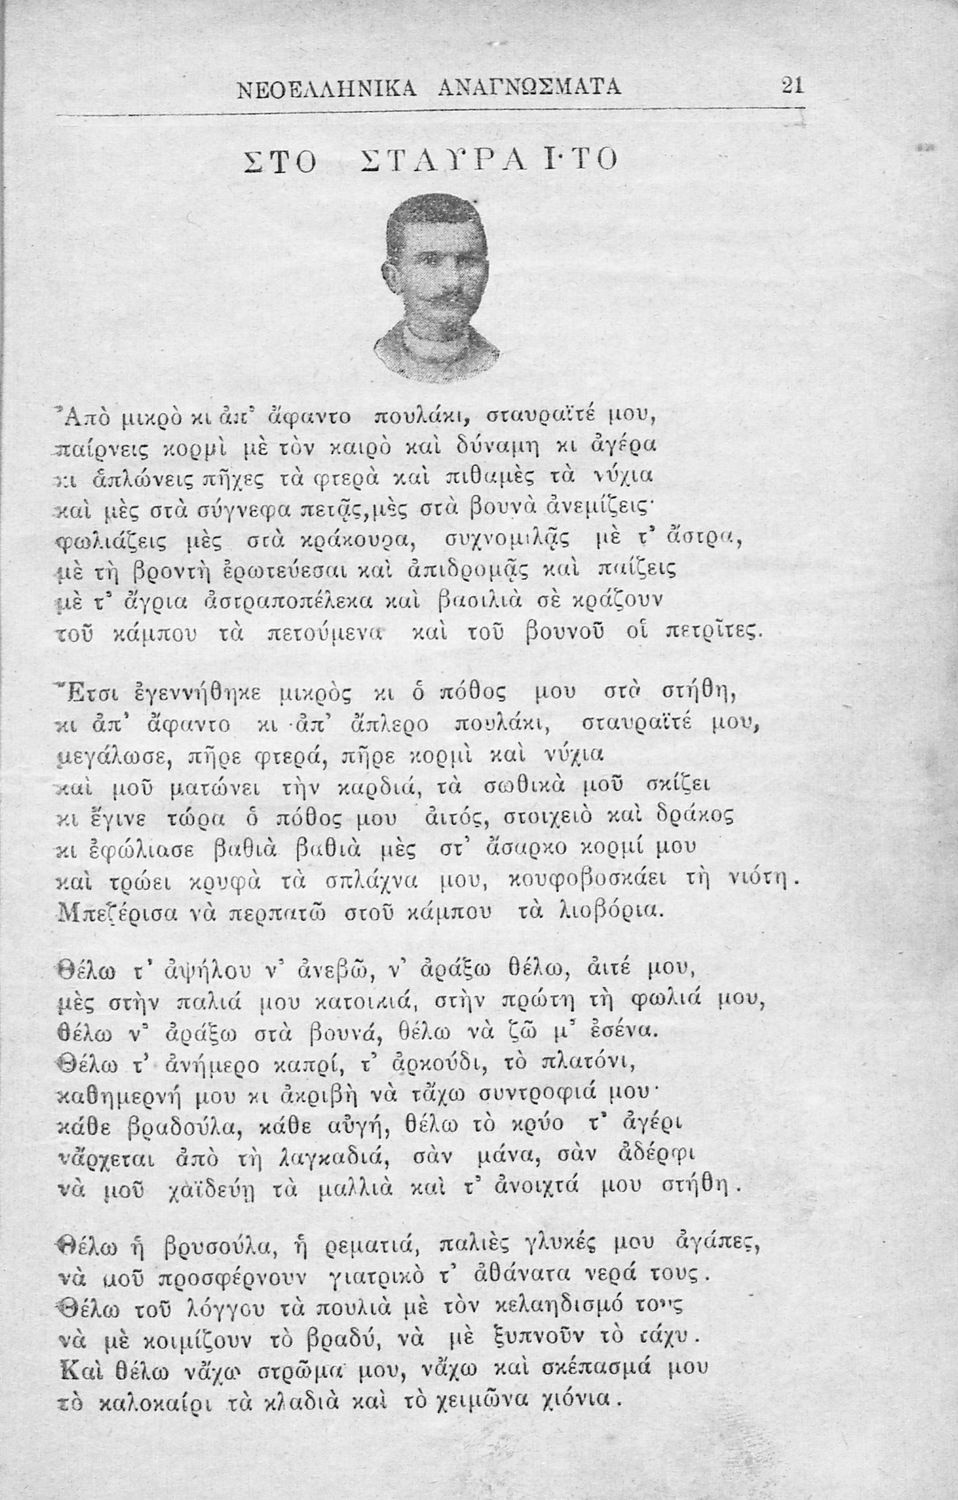 ΝΕΟΕΛΛΗΝΙΚΑ ΑΝΑΓΝΩΣΜΑΤΑ 21
ΣΤΟ ΣΤΑΥΡΑΪΤΟ
Ἀπὸ μικρὸ κι ἀπ' ἄφαντο πουλάκι, σταυραϊτέ μου,
παίρνεις κορμὶ μὲ τὸν καιρὸ καὶ δύναμη κι ἀγέρα
κι ἁπλώνεις πῆχες τὰ φτερὰ καὶ πιθαμὲς τὰ νύχια
καὶ μὲς στὰ σύγνεφα πετᾷς,μὲς στὰ βουνὰ ἀνεμίζεις·
φωλιάζεις μὲς στὰ κράκουρα, συχνομιλᾷς μὲ τ' ἄστρα,
μὲ τὴ βροντὴ ἐρωτεύεσαι καὶ ἀπιδρομᾷς καὶ παίζεις
μὲ τ' ἄγρια ἀστραποπέλεκα καὶ βασιλιὰ σὲ κράζουν
τοῦ κάμπου τὰ πετούμενα καὶ τοῦ βουνοῦ οἱ πετρῖτες.
Ἔτσι ἐγεννήθηκε μικρὸς κι ὁ πόθος μου στὰ στήθη,
κι ἀπ' ἄφαντο κι ἀπ' ἄπλερο πουλάκι, σταυραϊτέ μου,
μεγάλωσε, πῆρε φτερά, πῆρε κορμὶ καὶ νύχια
καὶ μοῦ ματώνει τὴν καρδιά, τὰ σωθικὰ μοῦ σκίζει
κι ἔγινε τώρα ὁ πόθος μου ἀιτός, στοιχειὸ καὶ δράκος
κι ἐφώλιασε βαθιὰ βαθιὰ μὲς στ' ἄσαρκο κορμί μου
καὶ τρώει κρυφὰ τὰ σπλάχνα μου, κουφοβοσκάει τὴ νιότη.
Μπεζέρισα νὰ περπατῶ στοῦ κάμπου τὰ λιοβόρια.
Θέλω τ' ἀψήλου ν' ἀνεβῶ, ν' ἀράξω θέλω, ἀιτέ μου,
μὲς στὴν παλιά μου κατοικιά, στὴν πρώτη τὴ φωλιά μου,
θέλω ν' ἀράξω στὰ βουνά, θέλω νὰ ζῶ μ' ἐσένα.
Θέλω τ' ἀνήμερο καπρί, τ' ἀρκούδι, τὸ πλατόνι,
καθημερνή μου κι ἀκριβὴ νὰ τἄχω συντροφιά μου·
κάθε βραδούλα, κάθε αὐγή, θέλω τὸ κρύο τ' ἀγέρι
νἄρχεται ἀπὸ τὴ λαγκαδιά, σὰν μάνα, σὰν ἀδέρφι
νὰ μοῦ χαϊδεύῃ τὰ μαλλιὰ καὶ τ' ἀνοιχτά μου στήθη.
Θέλω ἡ βρυσούλα, ἡ ρεματιά, παλιὲς γλυκές μου ἀγάπες,
νὰ μοῦ προσφέρνουν γιατρικὸ τ' ἀθάνατα νερά τους.
Θέλω τοῦ λόγγου τὰ πουλιὰ μὲ τὸν κελαηδισμό τους
νὰ μὲ κοιμίζουν τὸ βραδύ, νὰ μὲ ξυπνοῦν τὸ τάχυ.
Καὶ θέλω νἄχω στρῶμα μου, νἄχω καὶ σκέπασμά μου
τὸ καλοκαίρι τὰ κλαδιὰ καὶ τὸ χειμῶνα χιόνια.